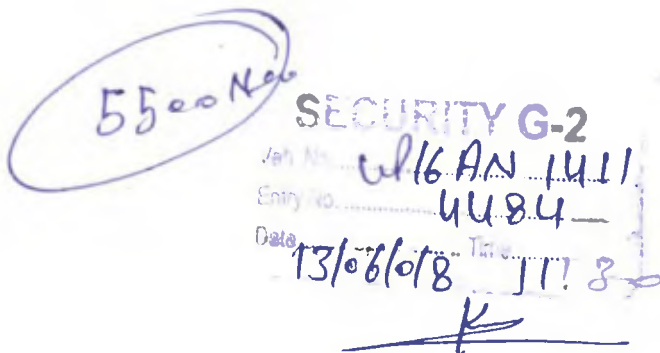 5500 Nos
SECURITY G-2
Veh No. UP16 AN 1411
Entry No. 4484
Date 13/06/018 Time 11:30